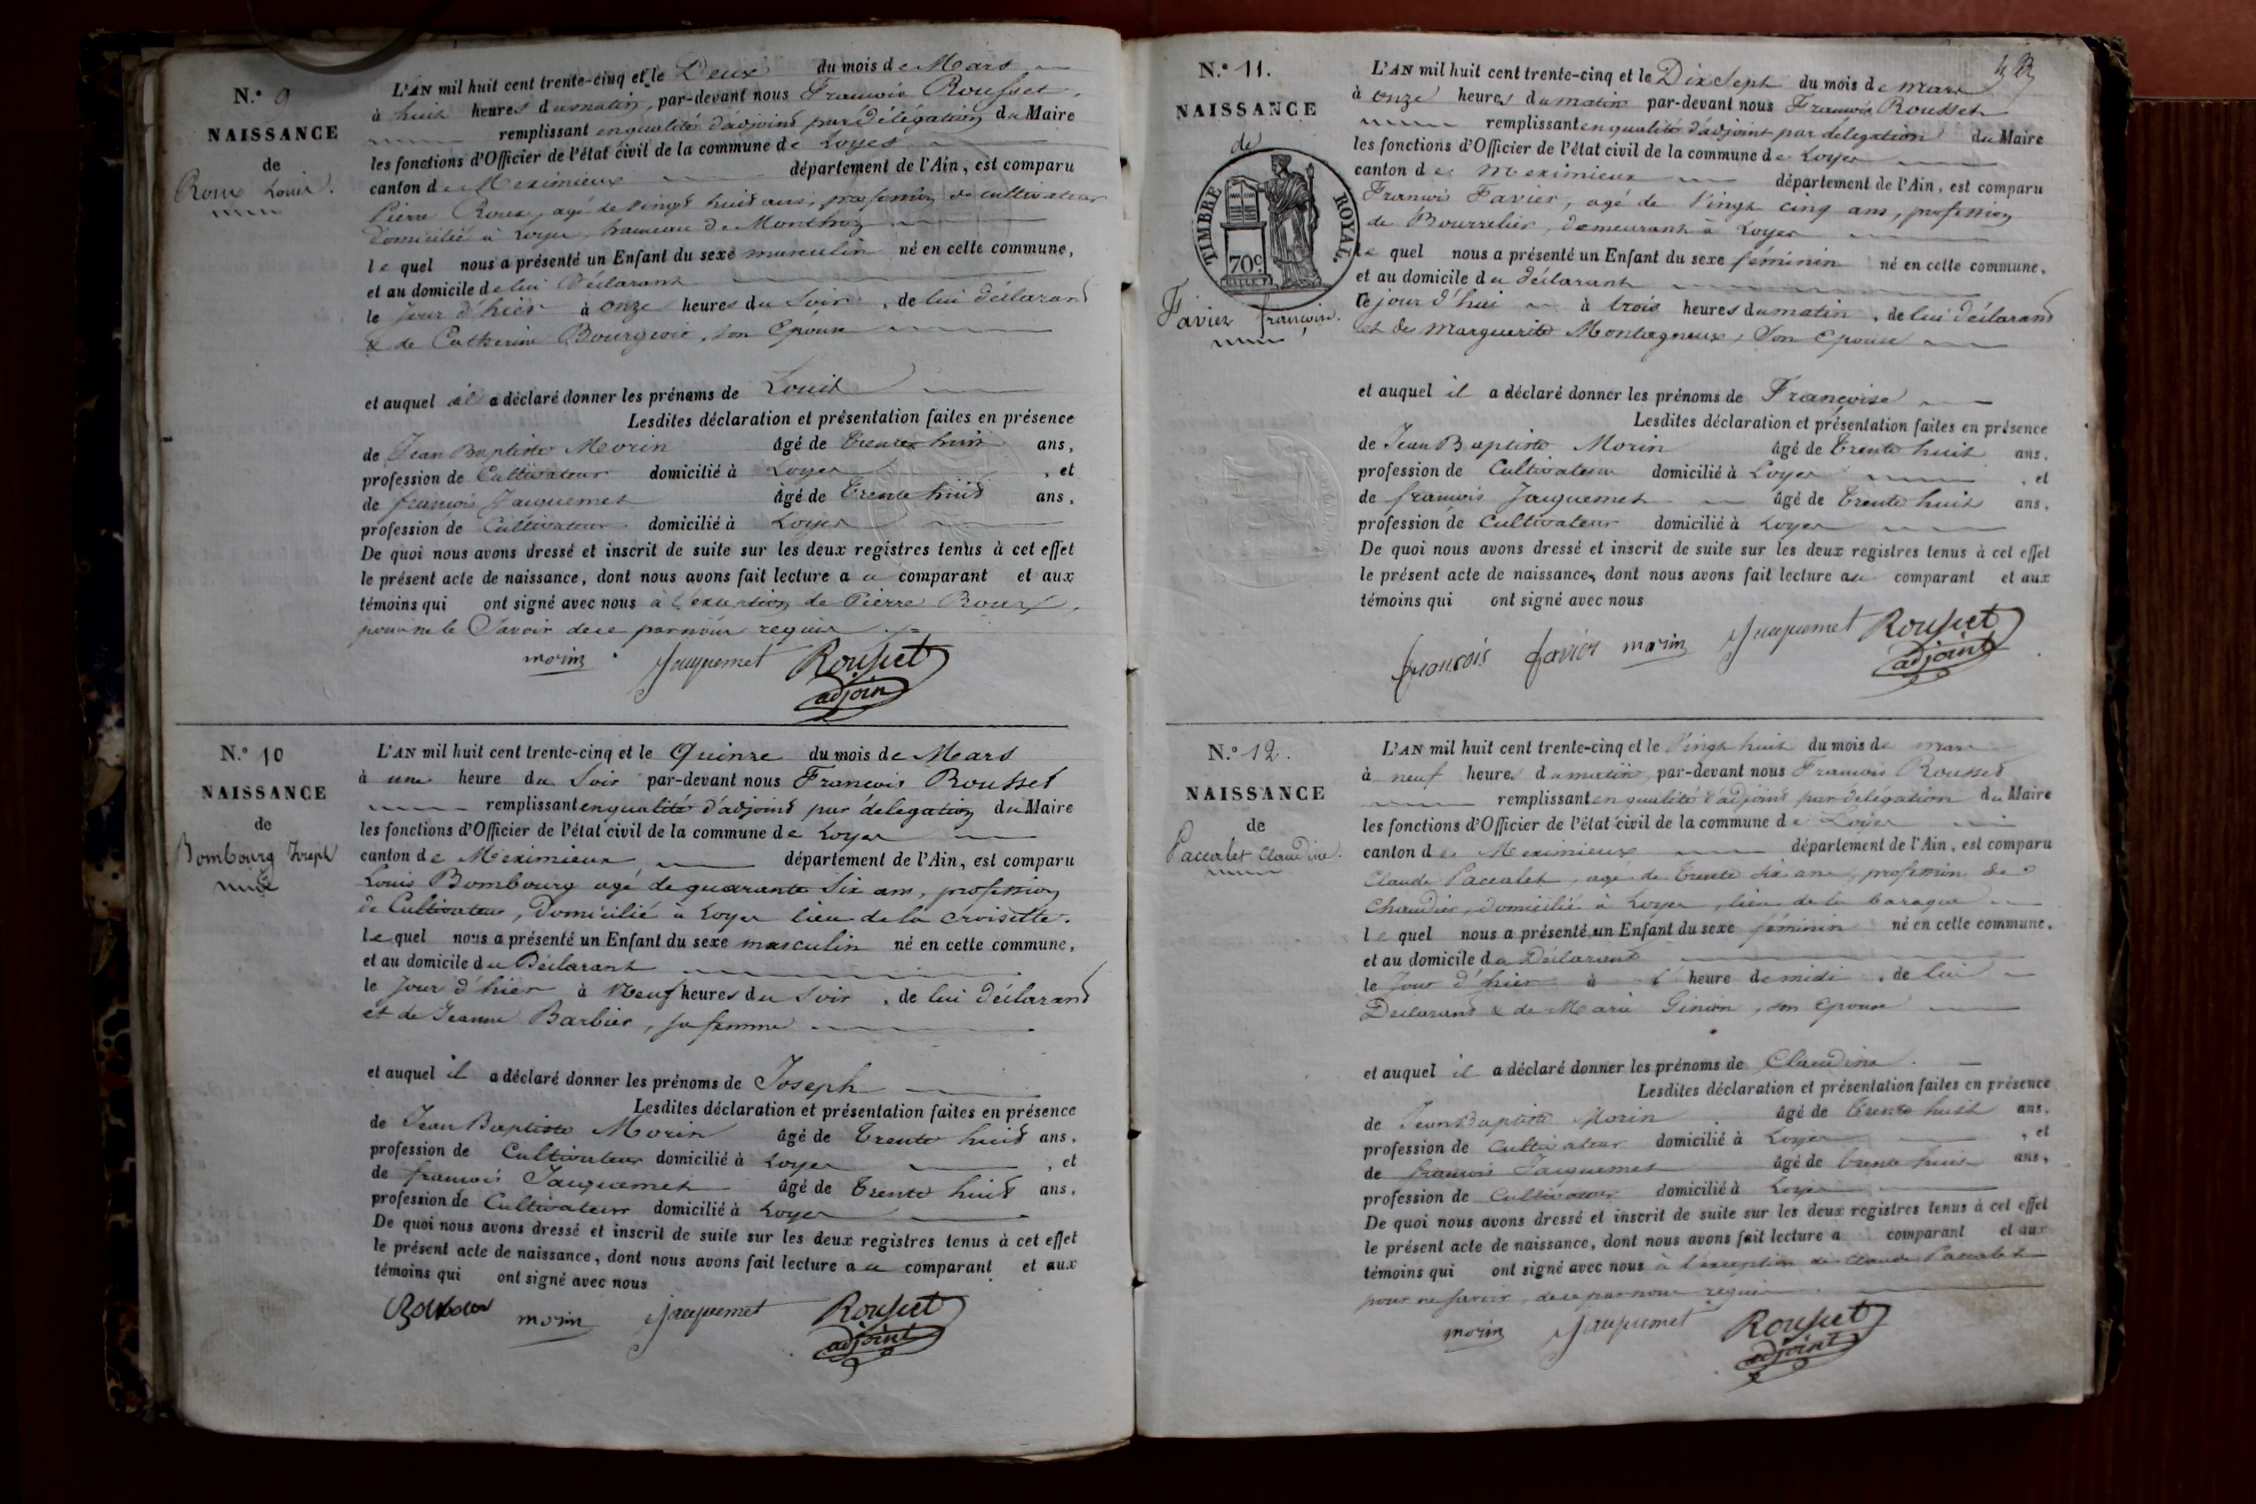 N.° 9
NAISSANCE
de
Roux Louis.
L'AN mil huit cent trente-cinq et le Deux du mois de Mars
à huit heures du matin, par-devant nous François Rousset,
remplissant en qualité d'adjoint par délégation du Maire
les fonctions d'Officier de l'état civil de la commune de Loyes
canton de Meximieux département de l'Ain, est comparu
Pierre Roux, agé de vingt huit ans, profession de cultivateur
domicilié à Loyes, hameau de Monthoz
le quel nous a présenté un Enfant du sexe masculin né en cette commune,
et au domicile de lui Déclarant
le jour d'hier à onze heures du Soir, de lui déclarant
& de Catherine Bourgeois, son Epouse
et auquel il a déclaré donner les prénoms de Louis
Lesdites déclaration et présentation faites en présence
de Jean Baptiste Morin âgé de trente huit ans,
profession de Cultivateur domicilié à Loyes, et
de françois Jacquemet âgé de trente huit ans,
profession de Cultivateur domicilié à Loyes
De quoi nous avons dressé et inscrit de suite sur les deux registres tenus à cet effet
le présent acte de naissance, dont nous avons fait lecture au comparant et aux
témoins qui ont signé avec nous à l'exception de Pierre Roux,
pour ne le Savoir de ce par nous requis
morin Jacquemet Rousset
adjoin
N.° 10
NAISSANCE
de
Bombourg Joseph
L'AN mil huit cent trente-cinq et le Quinze du mois de Mars
à une heure du Soir par-devant nous François Rousset
remplissant en qualité d'adjoint par délégation du Maire
les fonctions d'Officier de l'état civil de la commune de Loyes
canton de Meximieux département de l'Ain, est comparu
Louis Bombourg agé de quarante Six ans, profession
de Cultivateur, Domicilié à Loyes lieu de la croisette.
le quel nous a présenté un Enfant du sexe masculin né en cette commune,
et au domicile du Déclarant
le jour d'hier à Neuf heures du Soir, de lui déclarant
et de Jeanne Barbier, sa femme
et auquel il a déclaré donner les prénoms de Joseph
Lesdites déclaration et présentation faites en présence
de Jean Baptiste Morin âgé de trente huit ans,
profession de Cultivateur domicilié à Loyes, et
de françois Jacquemet âgé de trente huit ans,
profession de Cultivateur domicilié à Loyes
De quoi nous avons dressé et inscrit de suite sur les deux registres tenus à cet effet
le présent acte de naissance, dont nous avons fait lecture au comparant et aux
témoins qui ont signé avec nous
morin Jacquemet Rousset
adjoint
N.° 11.
NAISSANCE
de
TIMBRE ROYAL
70c
Favier françoise.
L'AN mil huit cent trente-cinq et le Dix Sept du mois de mars
à onze heures du matin par-devant nous François Rousset
remplissant en qualité d'adjoint par délégation du Maire
les fonctions d'Officier de l'état civil de la commune de Loyes
canton de Meximieux département de l'Ain, est comparu
François Favier, agé de Vingt cinq ans, profession
de Bourrelier, demeurant à Loyes
le quel nous a présenté un Enfant du sexe féminin né en cette commune,
et au domicile du déclarant
ce jour d'hui à trois heures du matin, de lui déclarant
et de Marguerite Montagneux, Son Epouse
et auquel il a déclaré donner les prénoms de Françoise
Lesdites déclaration et présentation faites en présence
de Jean Baptiste Morin âgé de trente huit ans,
profession de Cultivateur domicilié à Loyes, et
de françois Jacquemet âgé de trente huit ans,
profession de Cultivateur domicilié à Loyes
De quoi nous avons dressé et inscrit de suite sur les deux registres tenus à cet effet
le présent acte de naissance, dont nous avons fait lecture au comparant et aux
témoins qui ont signé avec nous
françois favier morin Jacquemet Rousset
adjoint
N.° 12.
NAISSANCE
de
Paccalet Claudine.
L'AN mil huit cent trente-cinq et le Vingt huit du mois de mars
à neuf heures du matin, par-devant nous François Rousset
remplissant en qualité d'adjoint par délégation du Maire
les fonctions d'Officier de l'état civil de la commune de Loyes
canton de Meximieux département de l'Ain, est comparu
Claude Paccalet, agé de trente Six ans, profession de
domicilié à Loyes, lieu de la baraque
le quel nous a présenté un Enfant du sexe féminin né en cette commune,
et au domicile du Déclarant
le Jour d'hier à l' heure de midi, de lui
Déclarant & de Marie Ginion, son Epouse
et auquel il a déclaré donner les prénoms de Claudine
Lesdites déclaration et présentation faites en présence
de Jean Baptiste Morin âgé de trente huit ans,
profession de Cultivateur domicilié à Loyes, et
de françois Jacquemet âgé de trente huit ans,
profession de Cultivateur domicilié à Loyes
De quoi nous avons dressé et inscrit de suite sur les deux registres tenus à cet effet
le présent acte de naissance, dont nous avons fait lecture a comparant et aux
témoins qui ont signé avec nous à l'exception de Claude Paccalet
pour ne savoir, de ce par nous requis
morin Jacquemet Rousset
adjoint